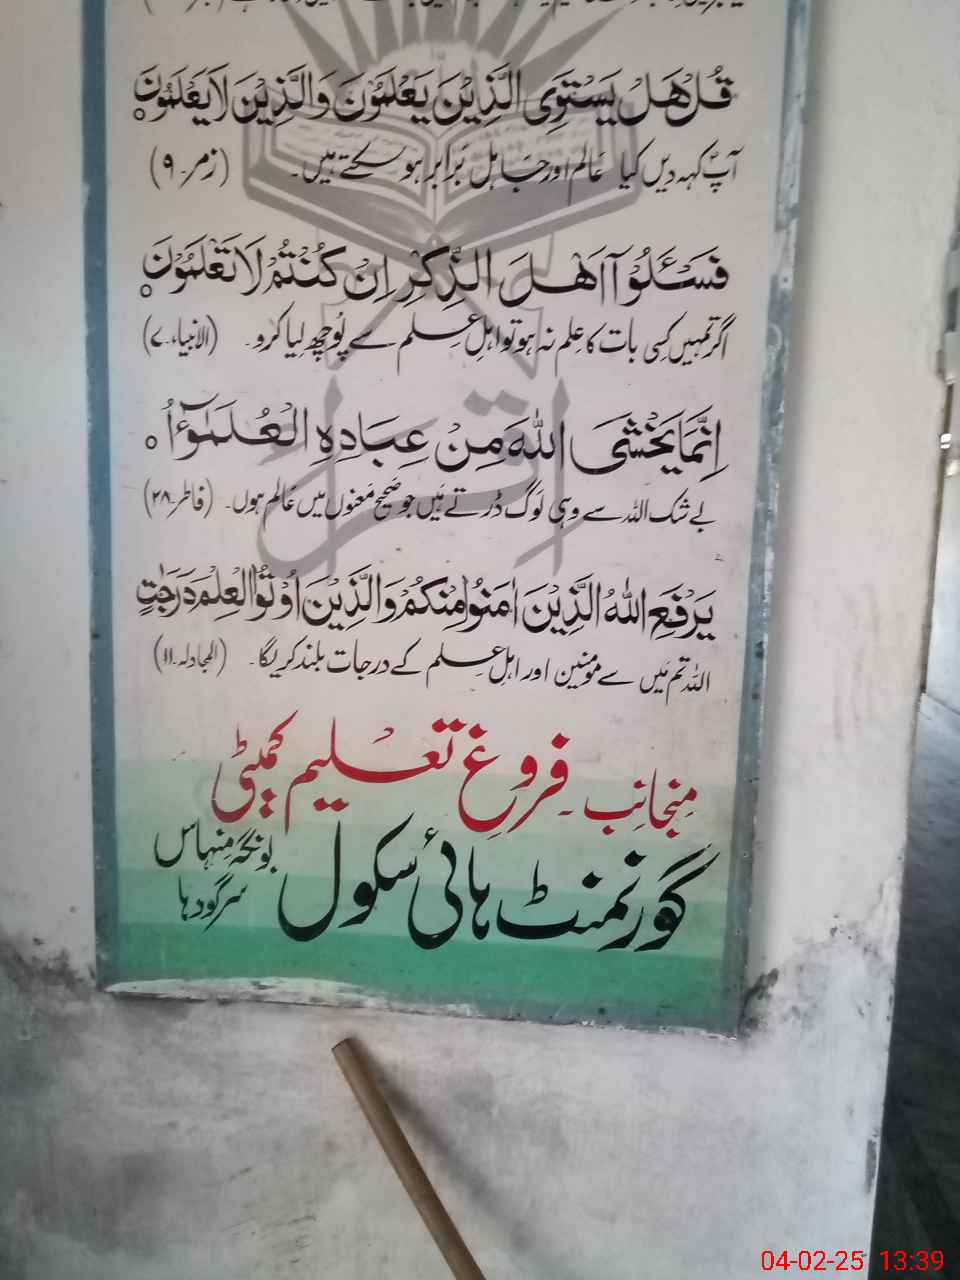 قُلْ هَلْ يَسْتَوِى الَّذِيْنَ يَعْلَمُوْنَ وَالَّذِيْنَ لَا يَعْلَمُوْنَ ○
آپؐ کہہ دیں کیا عَالم اور جَاہل بَرابر ہو سکتے ہیں۔ (زمر۔۹)
فَسْـَٔلُوْآ اَهْلَ الذِّكْرِ اِنْ كُنْتُمْ لَا تَعْلَمُوْنَ ○
اگر تمہیں کِسی بات کا عِلم نہ ہو تو اہلِ عِلم سے پُوچھ لیا کرو۔ (الانبیاء۔۷)
اِنَّمَا يَخْشَى اللّٰهَ مِنْ عِبَادِهِ الْعُلَمٰٓؤُا ○
بے شک اللہ سے وہی لوگ ڈرتے ہیں جو صحیح معنوں میں عَالم ہوں۔ (فاطر۔۲۸)
يَرْفَعِ اللّٰهُ الَّذِيْنَ اٰمَنُوْا مِنْكُمْ وَالَّذِيْنَ اُوْتُوا الْعِلْمَ دَرَجٰتٍ
اللہ تم میں سے مومنین اور اہلِ عِلم کے درجات بلند کریگا۔ (المجادلہ۔۱۱)
اقرأ
مِنجانِب۔ فروغِ تعلیم کمیٹی
گورنمنٹ ہائی سکول بونگہ مِنہاس
سرگودہا
04-02-25 13:39